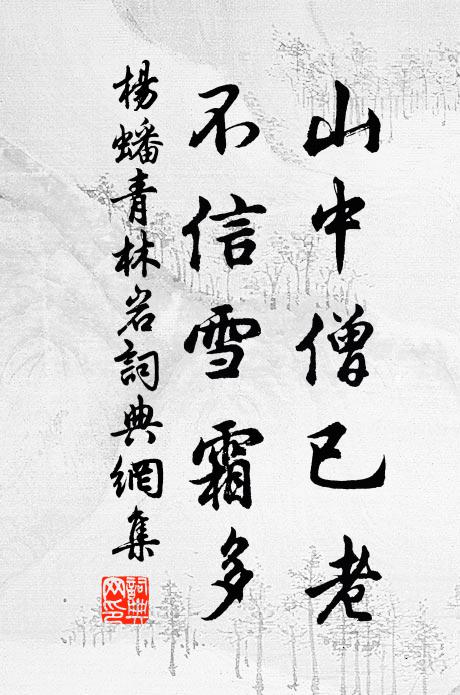 山中僧已老
不信雪霜多
楊蟠青林岩詞典網集
詞典
网印